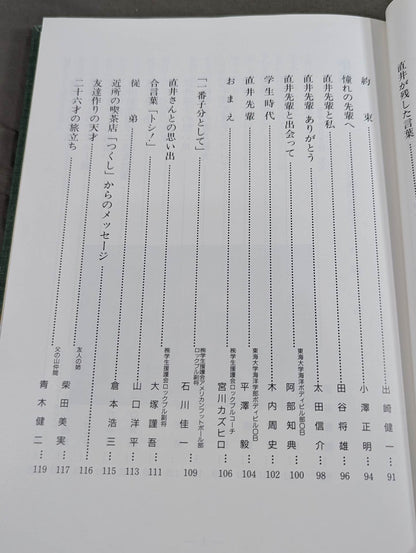 直井が残した言葉
約束 出崎健一 91
憧れの先輩へ 小澤正明 94
直井先輩と私 田谷将雄 96
直井先輩 ありがとう 太田信介 98
直井先輩と出会って 東海大学海洋ボディビル部OB 阿部知典 100
学生時代 木内周史 102
直井先輩 東海大学海洋学部ボディビルOB 平澤毅 104
おまえ ㈱学生援護会ロックブルコーチ 宮川カズヒロ 106
「一番子分として」 ㈱学生援護会アメリカンフットボール部ロックブル副将 石川佳一 109
直井さんとの思い出 ㈱学生援護会ロックブル副将 大塚謹吾 111
合言葉「トシ！」 山口洋平 113
従弟 倉本浩三 115
近所の喫茶店「つくし」からのメッセージ 116
友達作りの天才 友人の姉 柴田美実 117
二十六才の旅立ち 父の山仲間 青木健二 119